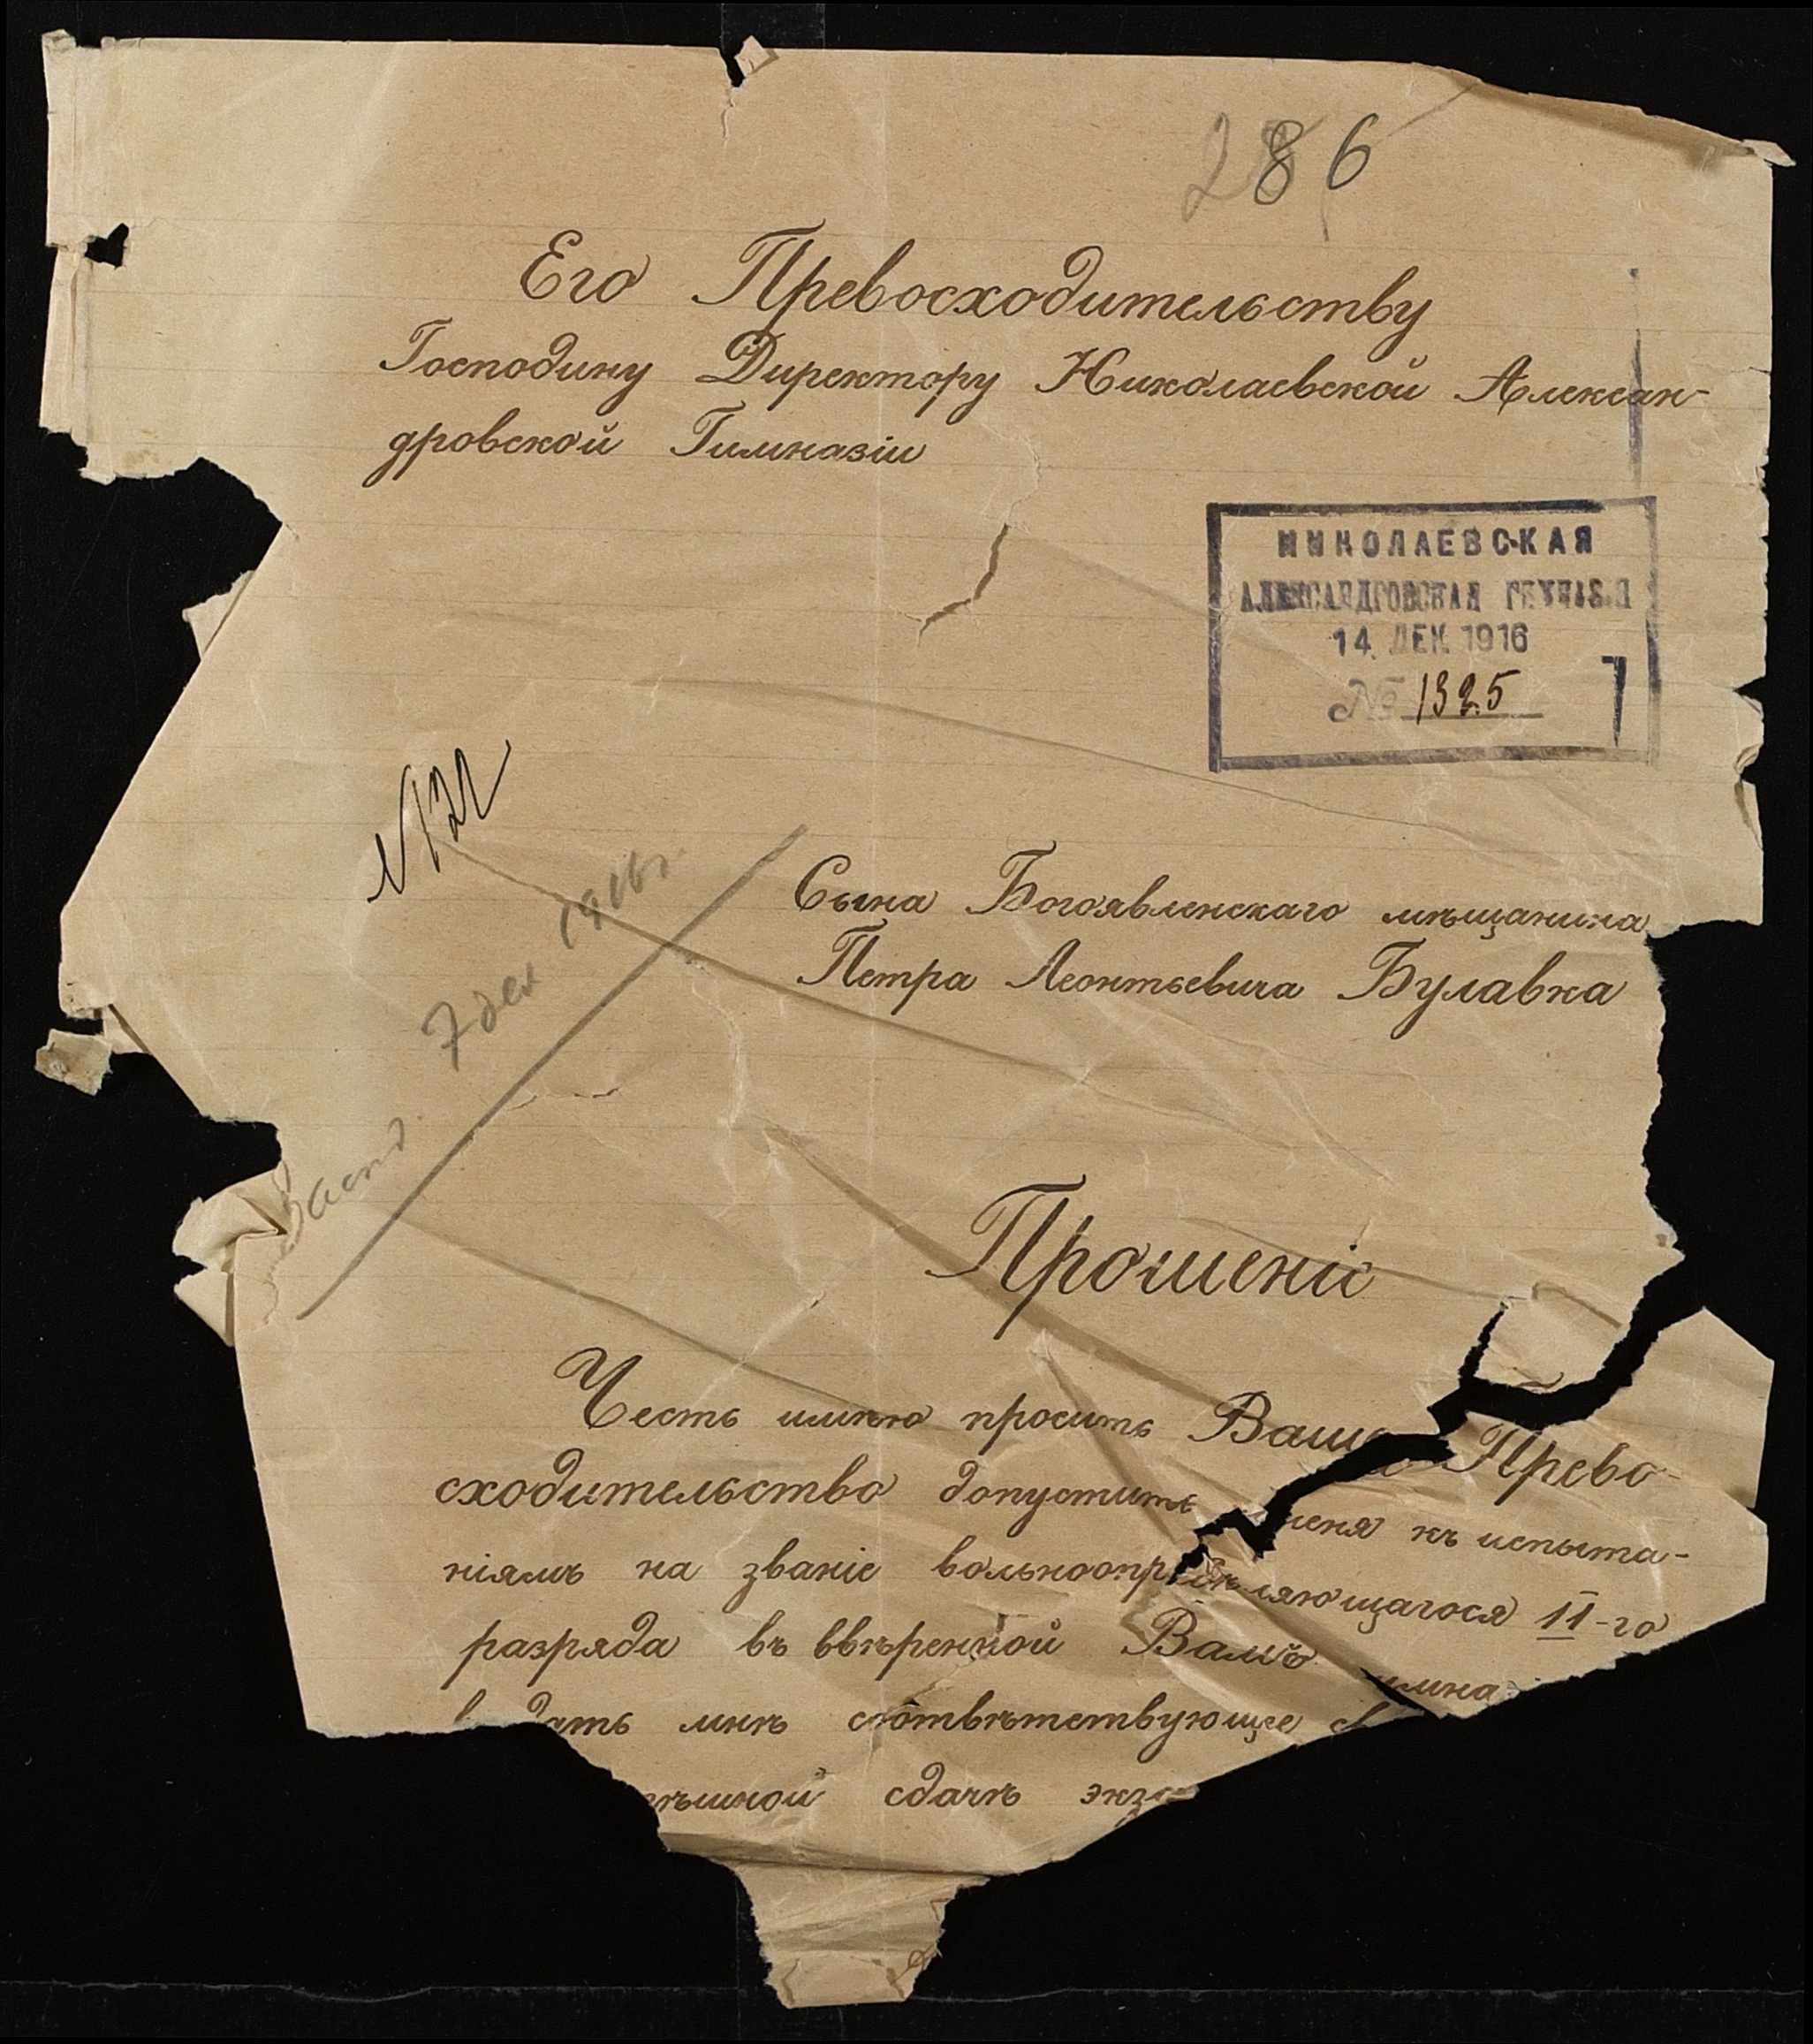 286
Его Превосходительству
Господину Директору Николаевской Алексан-
дровской Гимназіи
НИКОЛАЕВСКАЯ
АЛЕКСАНДРОВСКАЯ ГИМНАЗ.Я
14 ДЕК. 1916
№ 1325
7 дек 1916 г.
Сына Богоявленскаго мѣщанина
Петра Леонтьевича Булавка
Прошеніе
Честь имѣю просить Ваше Прево-
сходительство допустить меня къ испыта-
ніямъ на званіе вольноопредѣляющагося II-го
разряда въ ввѣренной Вамъ имна
дать мнѣ соотвѣтствующее
ѣшной сдачѣ экза